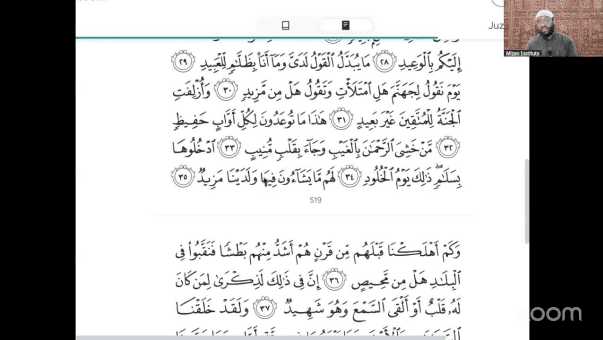 Juz
Mizan Institute
إِلَيْكُم بِالْوَعِيدِ ٢٨ مَا يُبَدَّلُ الْقَوْلُ لَدَيَّ وَمَا أَنَا بِظَلَّامٍ لِّلْعَبِيدِ ٢٩
يَوْمَ نَقُولُ لِجَهَنَّمَ هَلِ امْتَلَأْتِ وَتَقُولُ هَلْ مِن مَّزِيدٍ ٣٠ وَأُزْلِفَتِ
الْجَنَّةُ لِلْمُتَّقِينَ غَيْرَ بَعِيدٍ ٣١ هَٰذَا مَا تُوعَدُونَ لِكُلِّ أَوَّابٍ حَفِيظٍ
٣٢ مَّنْ خَشِيَ الرَّحْمَٰنَ بِالْغَيْبِ وَجَاءَ بِقَلْبٍ مُّنِيبٍ ٣٣ ادْخُلُوهَا
بِسَلَامٍ ۖ ذَٰلِكَ يَوْمُ الْخُلُودِ ٣٤ لَهُم مَّا يَشَاءُونَ فِيهَا وَلَدَيْنَا مَزِيدٌ ٣٥
519
وَكَمْ أَهْلَكْنَا قَبْلَهُم مِّن قَرْنٍ هُمْ أَشَدُّ مِنْهُم بَطْشًا فَنَقَّبُوا فِي
الْبِلَادِ هَلْ مِن مَّحِيصٍ ٣٦ إِنَّ فِي ذَٰلِكَ لَذِكْرَىٰ لِمَن كَانَ
لَهُ قَلْبٌ أَوْ أَلْقَى السَّمْعَ وَهُوَ شَهِيدٌ ٣٧ وَلَقَدْ خَلَقْنَا
zoom